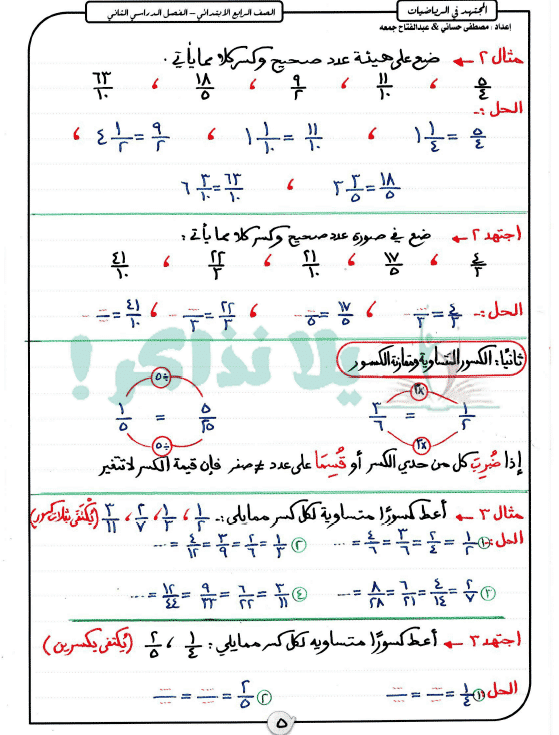 المجتهد في الرياضيات
الصف الرابع الابتدائي – الفصل الدراسي الثاني
إعداد : مصطفى حساني & عبدالفتاح جمعه
مثال ٢ ← ضع على هيئة عدد صحيح وكسر كلا مما يأتي :
٥/٤ ، ١١/١٠ ، ٩/٢ ، ١٨/٥ ، ٦٣/١٠
الحل :-
٥/٤ = ١ ١/٤ ، ١١/١٠ = ١ ١/١٠ ، ٩/٢ = ٤ ١/٢ ،
١٨/٥ = ٣ ٣/٥ ، ٦٣/١٠ = ٦ ٣/١٠
اجتهد ٢ ← ضع في صورة عدد صحيح وكسر كلا مما يأتي :
٤/٣ ، ١٧/٥ ، ٢١/١٠ ، ٢٢/٣ ، ٤١/١٠
الحل :- ٤/٣ = --/٣ ، ١٧/٥ = --/٥ ، ٢٢/٣ = --/٣ ، ٤١/١٠ = --
ثانيًا : الكسور المتساوية ومقارنة الكسور
يلا نذاكر !
×٣ ÷٥
١/٢ = ٣/٦ ٥/٢٥ = ١/٥
×٣ ÷٥
إذا ضُرِبَ كل من حدي الكسر أو قُسِمَا على عدد ≠ صفر فإن قيمة الكسر لا تتغير
مثال ٣ ← أعط كسورًا متساوية لكل كسر مما يلى :- ١/٢ ، ١/٣ ، ٢/٧ ، ٣/١١ (يُكتفى بثلاث كسور)
الحل :- ١) ١/٢ = ٢/٤ = ٣/٦ = ٤/٦ = ... ٢) ١/٣ = ٢/٦ = ٣/٩ = ٤/١٢ = ...
٣) ٢/٧ = ٤/١٤ = ٦/٢١ = ٨/٢٨ = ... ٤) ٣/١١ = ٦/٢٢ = ٩/٣٣ = ١٢/٤٤ = ...
اجتهد ٣ ← أعط كسورًا متساويه لكل كسر مما يلي : ١/٤ ، ٢/٥ (يُكتفى بكسرين)
الحل :- ١) ١/٤ = -- = -- ٢) ٢/٥ = -- = --
٥